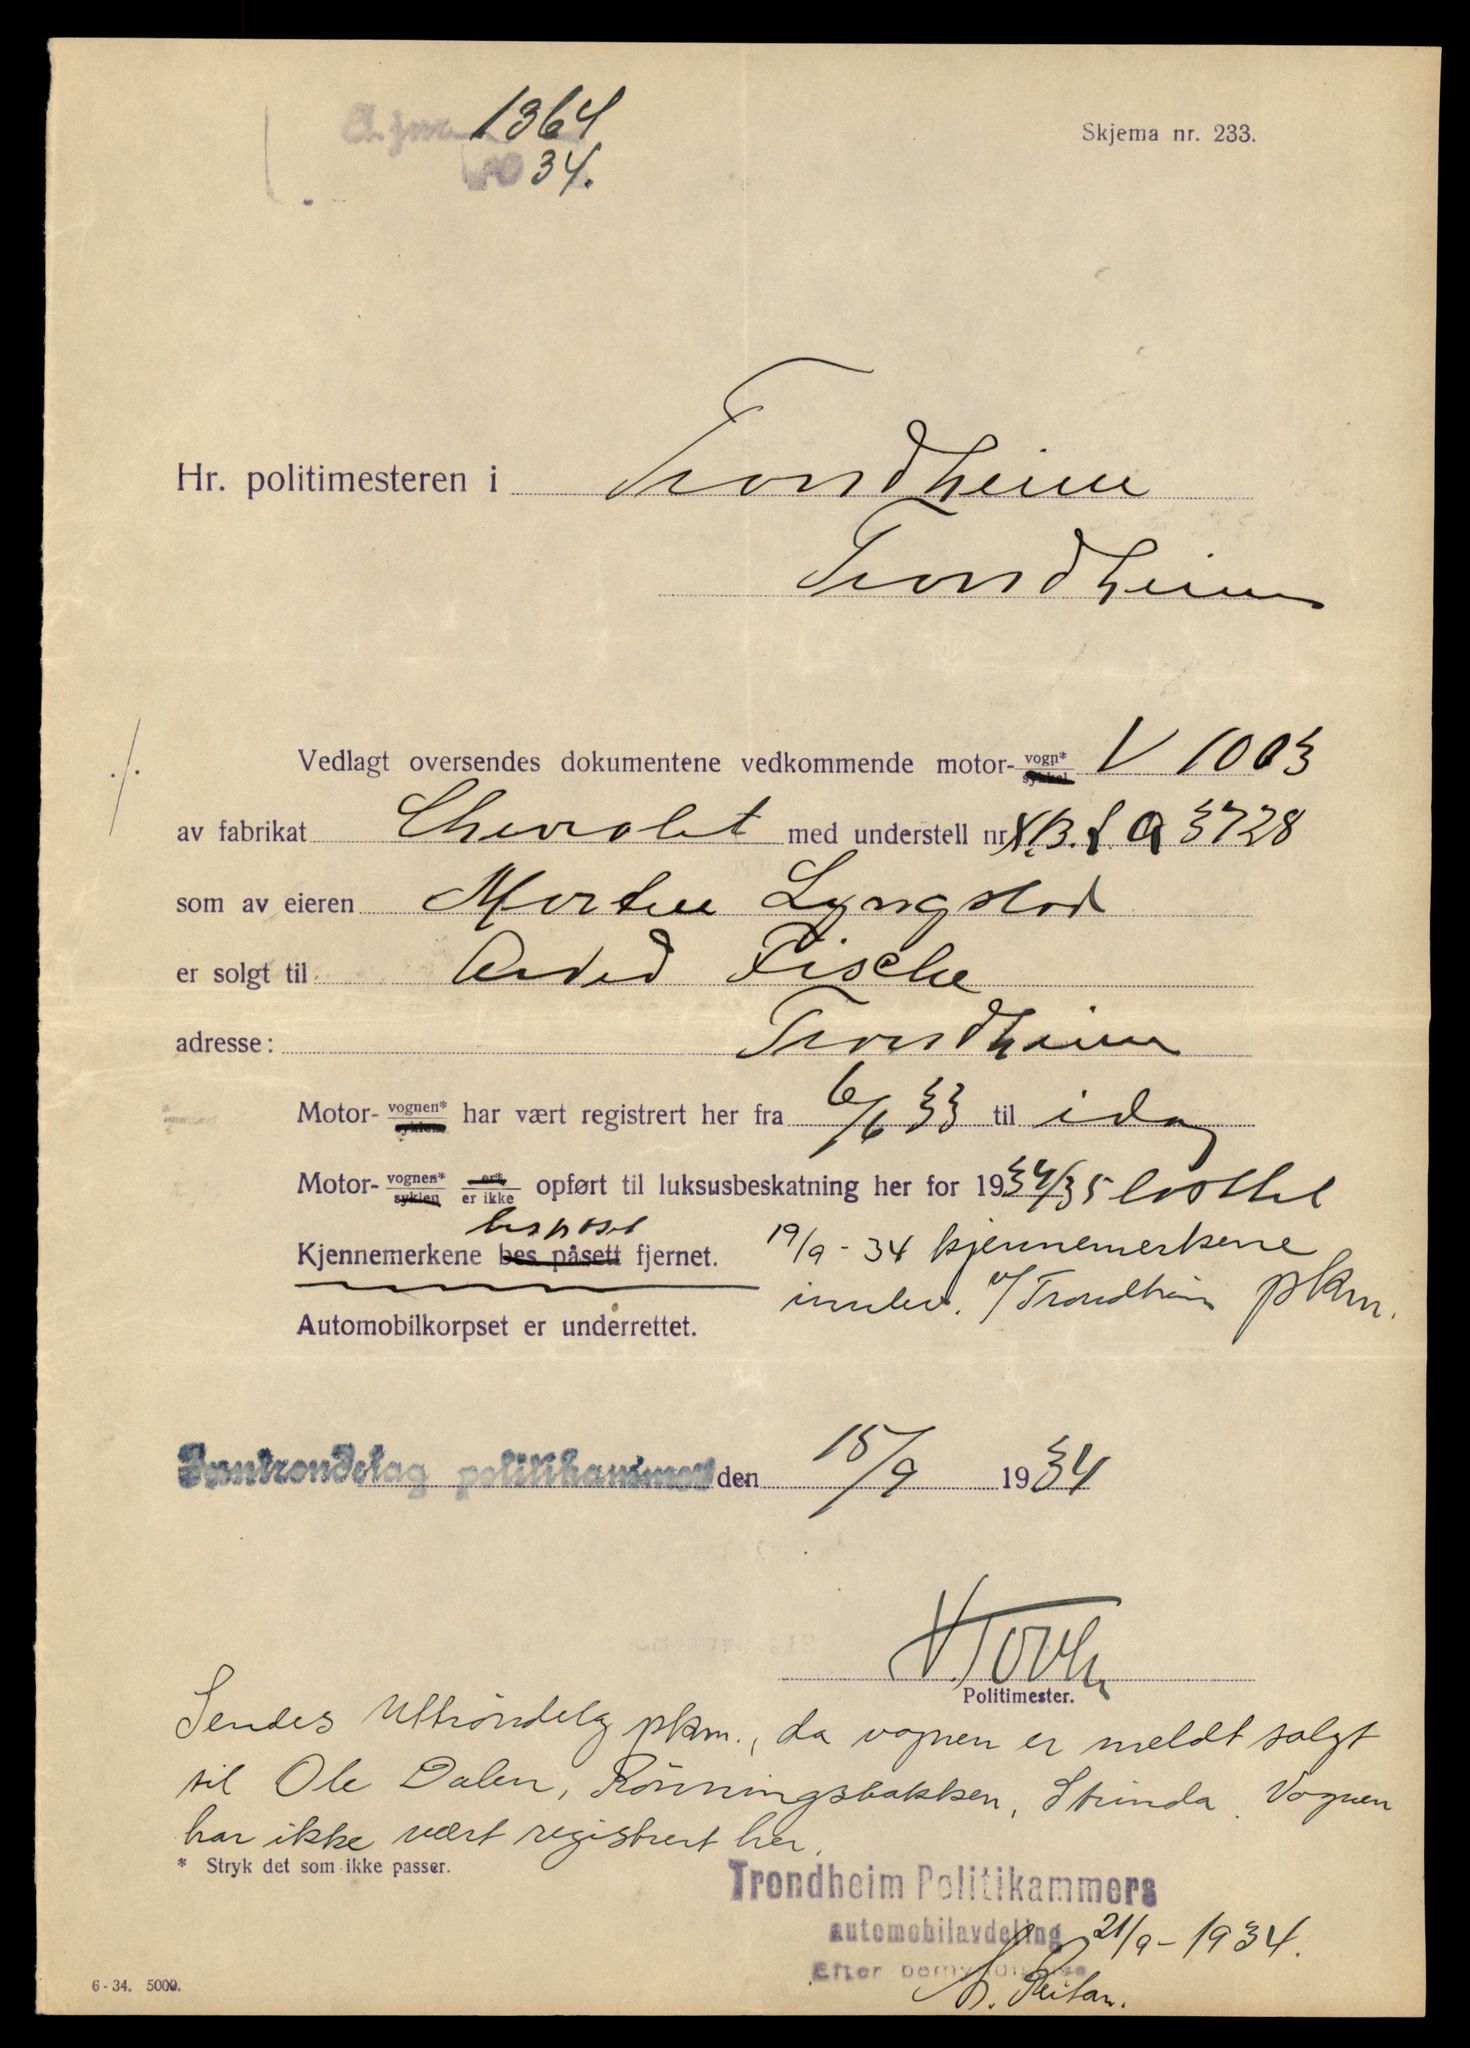 1364
34.
Skjema nr. 233.
Hr. politimesteren i Trondheim
Trondheim
Vedlagt oversendes dokumentene vedkommende motor- vogn* sykkel V 1003
av fabrikat Chevrolet med understell nr 3728
som av eieren Morten Lyngstad
er solgt til Fische
adresse: Trondheim
Motor- vognen* syklen har vært registrert her fra 6/6 33 til idag
Motor- vognen* syklen er* er ikke opført til luksusbeskatning her for 1934/35 lastbil
Kjennemerkene bes påsett bes påsett fjernet.
19/9 - 34 kjennemerkene
innlev. v/ Trondheim pkm.
Automobilkorpset er underrettet.
Inntrondelag politikammer den 15/9 1934
Politimester.
Sendes Uttröndelag pkm., da vognen er meldt solgt
til Ole Dalen, Rönningsbakken, Strinda. Vognen
har ikke vært registrert her.
* Stryk det som ikke passer.
Trondheim Politikammers
automobilavdeling 21/9 - 1934.
Efter bemyndigelse
Reitan.
6 - 34. 5000.